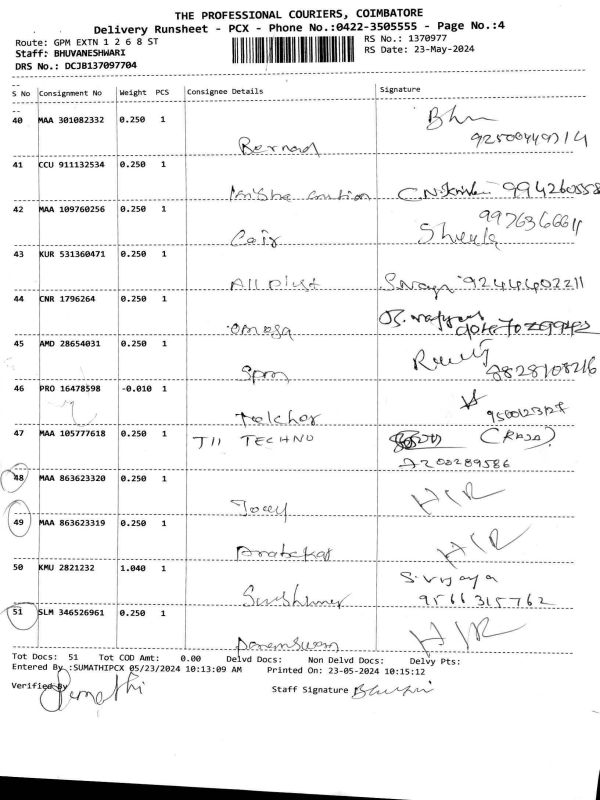 THE PROFESSIONAL COURIERS, COIMBATORE
Delivery Runsheet - PCX - Phone No.:0422-3505555 - Page No.:4
Route: GPM EXTN 1 2 6 8 ST RS No.: 1370977
Staff: BHUVANESHWARI RS Date: 23-May-2024
DRS No.: DCJB137097704
S No Consignment No Weight PCS Consignee Details Signature
40 MAA 301082332 0.250 1
Bernad
41 CCU 911132534 0.250 1
42 MAA 109760256 0.250 1
9976366611
Coir Sheela
43 KUR 531360471 0.250 1
All Dist 9244402211
44 CNR 1796264 0.250 1
omega
45 AMD 28654031 0.250 1
Spm 8828108216
46 PRO 16478598 -0.010 1
9500123127
47 MAA 105777618 0.250 1 TII TECHNO (RAJA)
7200289586
48 MAA 863623320 0.250 1 H/R
49 MAA 863623319 0.250 1 H/R
50 KMU 2821232 1.040 1 S. vijaya
9566315762
51 SLM 346526961 0.250 1 H/R
Tot Docs: 51 Tot COD Amt: 0.00 Delvd Docs: Non Delvd Docs: Delvy Pts:
Entered By :SUMATHIPCX 05/23/2024 10:13:09 AM Printed On: 23-05-2024 10:15:12
Verified By Sumathi Staff Signature